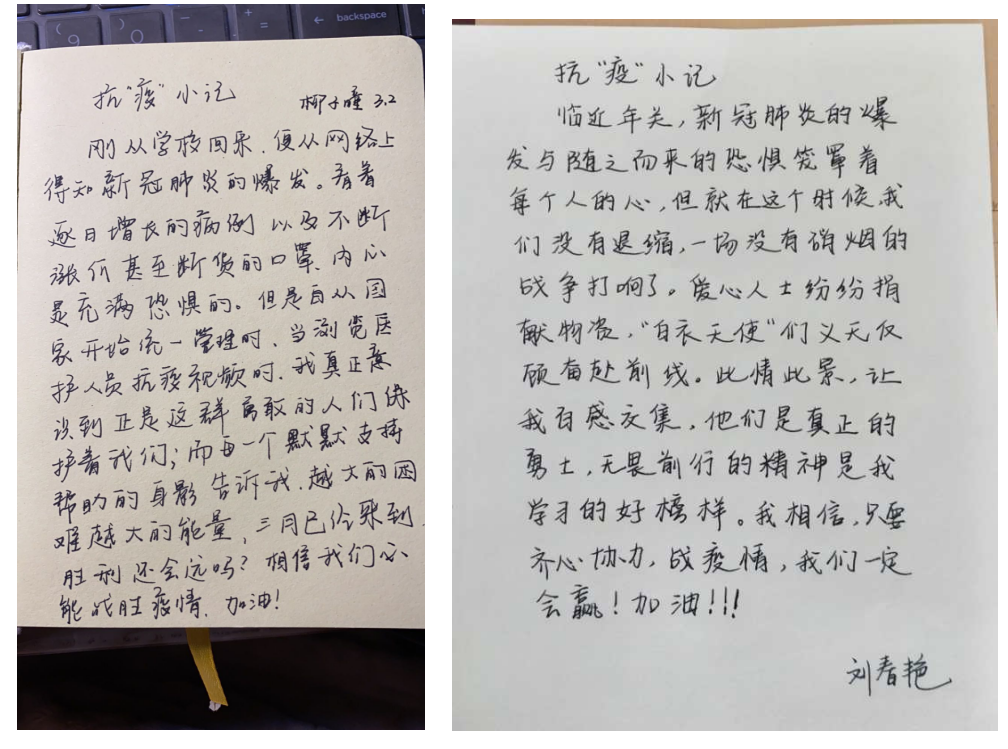 backspace
抗“疫”小记
柳子瞳 3.2
刚从学校回来,便从网络上
得知新冠肺炎的爆发。看着
逐日增长的病例以及不断
涨价甚至断货的口罩,内心
是充满恐惧的。但是自从国
家开始统一管理时,当浏览医
护人员抗疫视频时,我真正意
识到正是这群勇敢的人们保
护着我们;而每一个默默支持
帮助的身影告诉我,越大的困
难越大的能量,三月已经来到,
胜利还会远吗?相信我们必
能战胜疫情,加油!
抗“疫”小记
临近年关,新冠肺炎的爆
发与随之而来的恐惧笼罩着
每个人的心,但就在这个时候,我
们没有退缩,一场没有硝烟的
战争打响了。爱心人士纷纷捐
献物资,“白衣天使”们义无反
顾奋赴前线。此情此景,让
我百感交集,他们是真正的
勇士,无畏前行的精神是我
学习的好榜样。我相信,只要
齐心协力,战疫情,我们一定
会赢!加油!!!
刘春艳